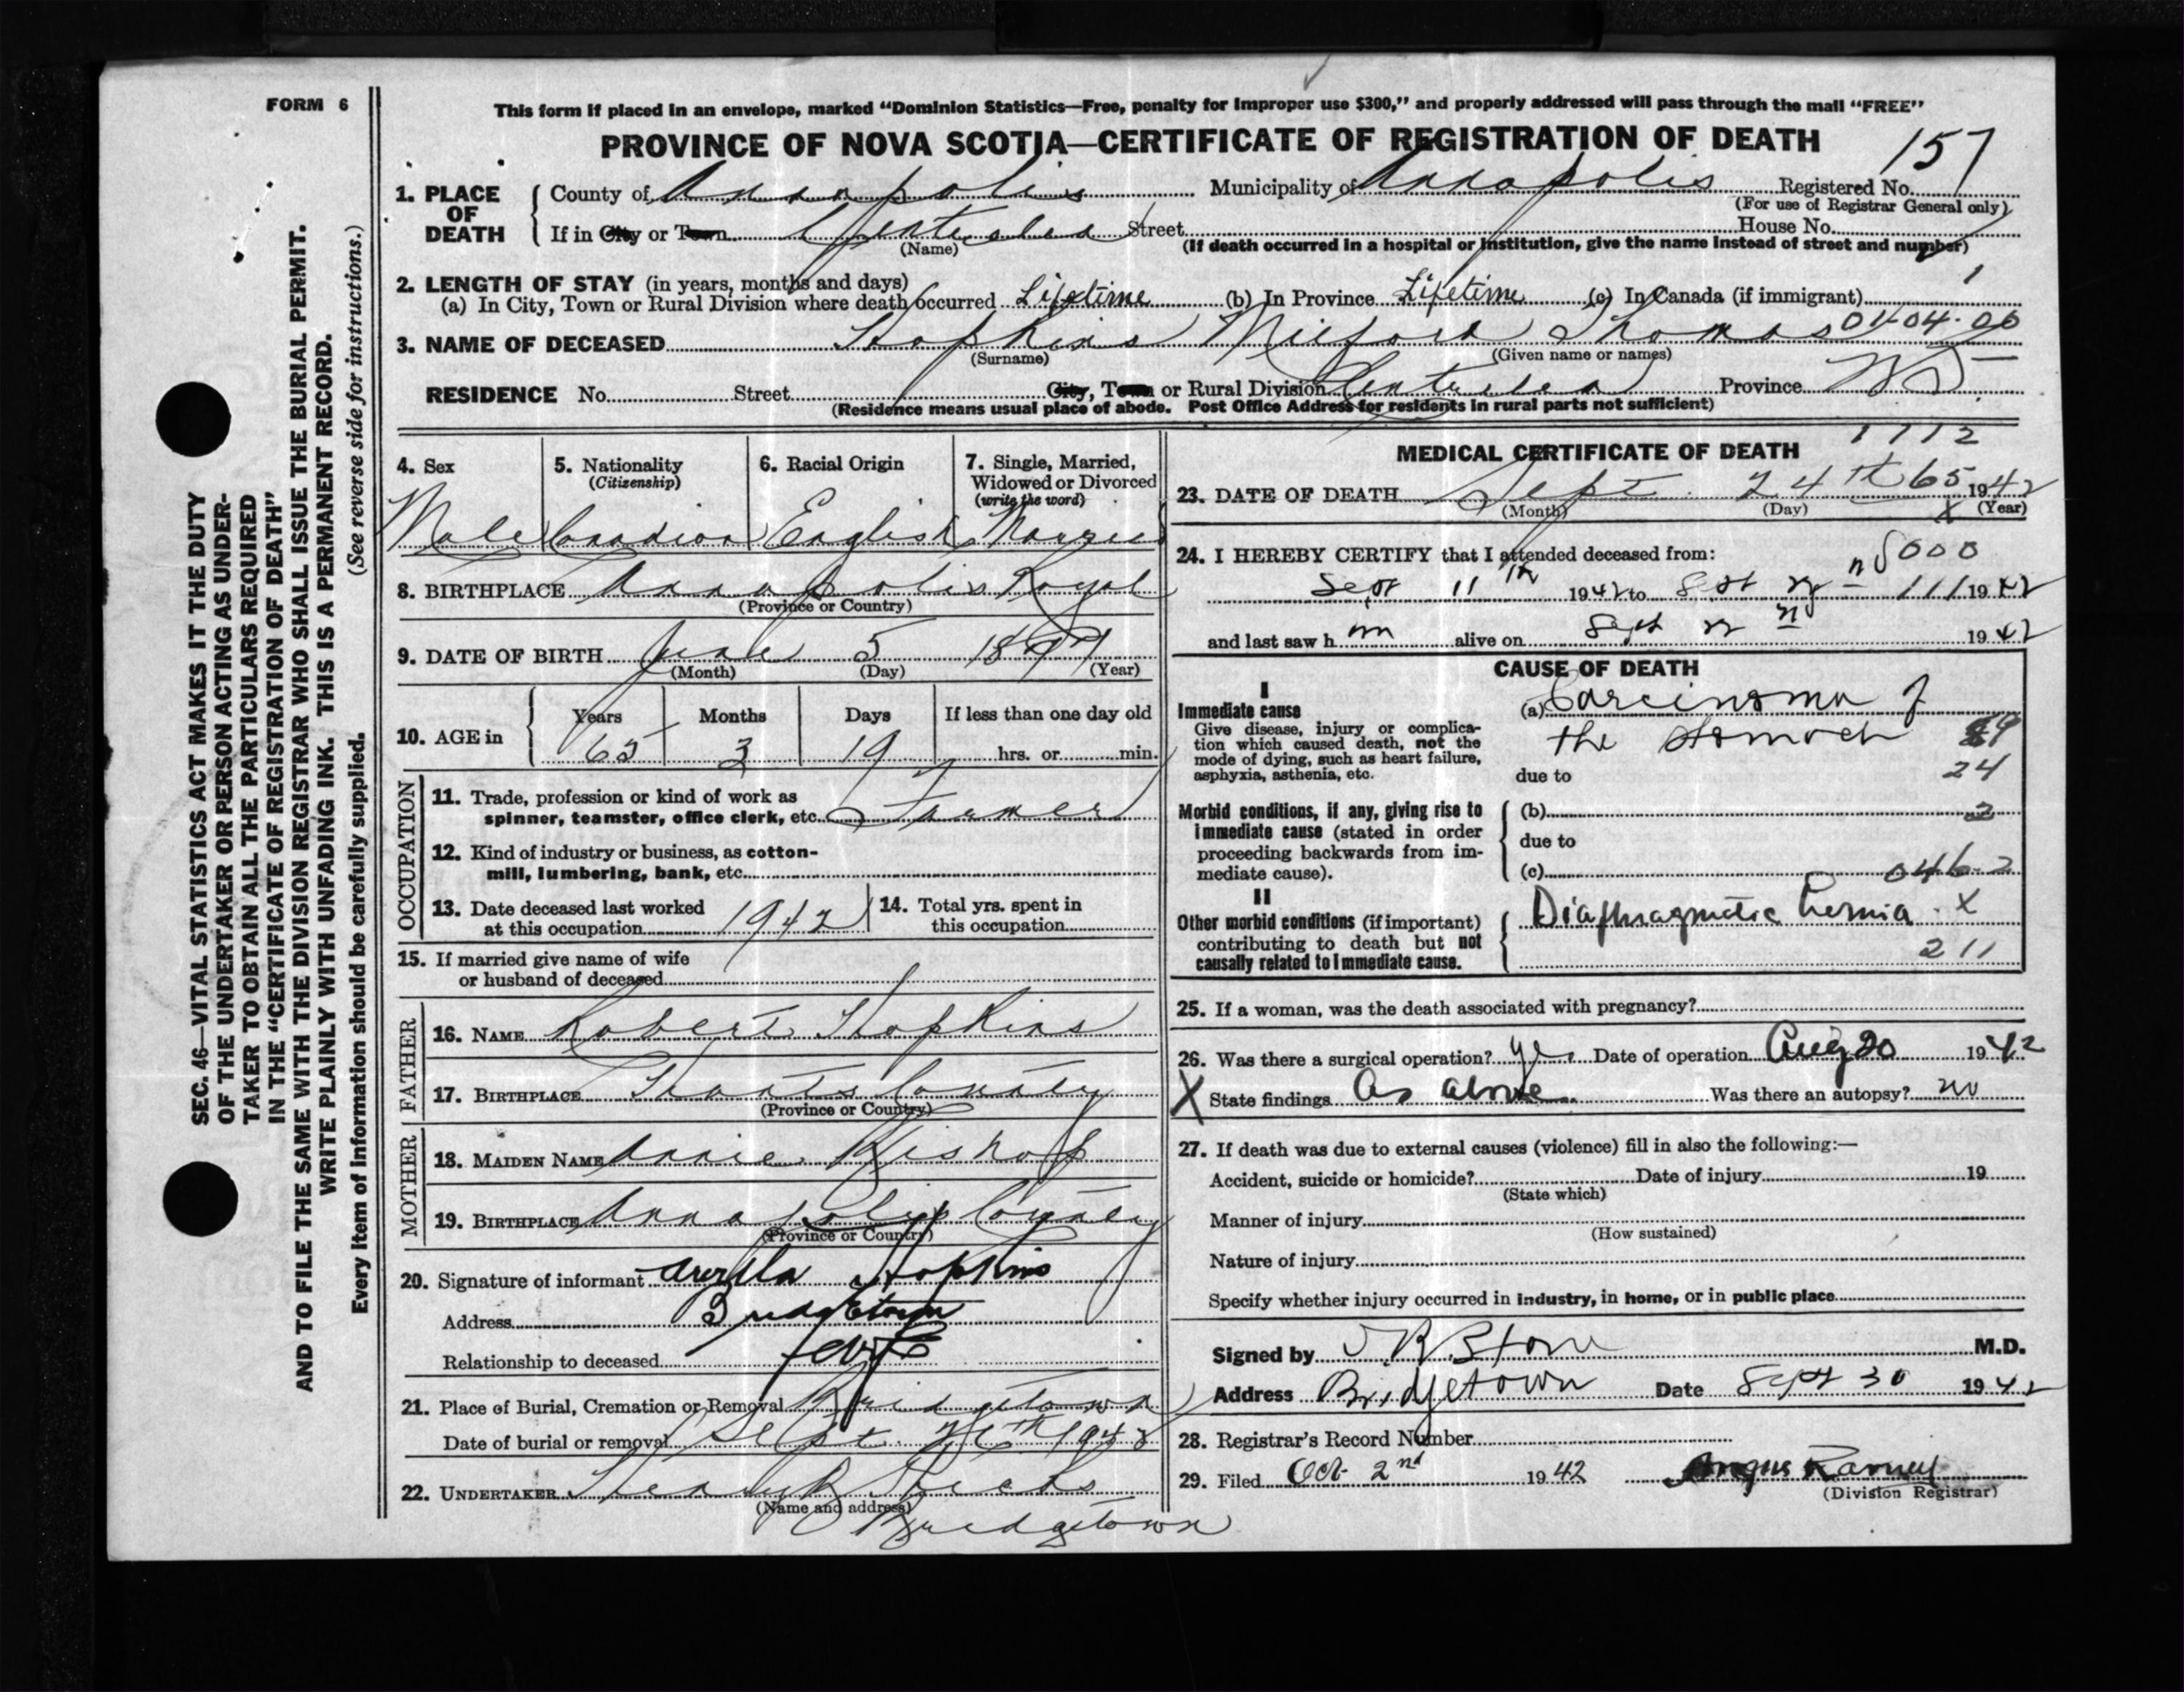 FORM 6
This form if placed in an envelope, marked “Dominion Statistics—Free, penalty for improper use $300,” and properly addressed will pass through the mail “FREE”
PROVINCE OF NOVA SCOTIA—CERTIFICATE OF REGISTRATION OF DEATH
157
1. PLACE OF DEATH County of Annapolis Municipality of Annapolis Registered No.
(For use of Registrar General only)
If in City or Town Centrelea Street House No.
(Name) (If death occurred in a hospital or institution, give the name instead of street and number)
2. LENGTH OF STAY (in years, months and days)
(a) In City, Town or Rural Division where death occurred Lifetime (b) In Province Lifetime (c) In Canada (if immigrant)
3. NAME OF DECEASED Hopkins Milford Thomas 04-04-00
(Surname) (Given name or names)
RESIDENCE No. Street City, Town or Rural Division Centrelea Province NS
(Residence means usual place of abode. Post Office Address for residents in rural parts not sufficient)
4. Sex 5. Nationality (Citizenship) 6. Racial Origin 7. Single, Married, Widowed or Divorced (write the word)
Male Canadian English Married
8. BIRTHPLACE Annapolis Royal
(Province or Country)
9. DATE OF BIRTH June 5 1877
(Month) (Day) (Year)
10. AGE in Years Months Days If less than one day old
65 3 19 hrs. or min.
OCCUPATION
11. Trade, profession or kind of work as spinner, teamster, office clerk, etc. Farmer
12. Kind of industry or business, as cotton-mill, lumbering, bank, etc.
13. Date deceased last worked at this occupation 1942 14. Total yrs. spent in this occupation
15. If married give name of wife
or husband of deceased
FATHER
16. NAME Robert Hopkins
17. BIRTHPLACE Hants County
(Province or Country)
MOTHER
18. MAIDEN NAME Annie Bishop
19. BIRTHPLACE Annapolis County
(Province or Country)
20. Signature of informant Hopkins
Address Bridgetown
Relationship to deceased wife
21. Place of Burial, Cremation or Removal Bridgetown
Date of burial or removal Sept. 26th 1942
22. UNDERTAKER Hicks
(Name and address)
Bridgetown
MEDICAL CERTIFICATE OF DEATH 1112
23. DATE OF DEATH Sept. 24th 65 1942
(Month) (Day) X (Year)
24. I HEREBY CERTIFY that I attended deceased from:
000
Sept 11th 1942 to Sept 22 n 111 1942
and last saw h im alive on Sept 22 n 1942
CAUSE OF DEATH
I
Immediate cause
Give disease, injury or complication which caused death, not the mode of dying, such as heart failure, asphyxia, asthenia, etc.
(a) Carcinoma of
the Stomach
due to 24
Morbid conditions, if any, giving rise to immediate cause (stated in order proceeding backwards from immediate cause).
(b) 2
due to
(c) 046-2
II
Other morbid conditions (if important) contributing to death but not causally related to immediate cause.
Diaphragmatic hernia. X
211
25. If a woman, was the death associated with pregnancy?
26. Was there a surgical operation? yes Date of operation Aug 20 1942
X State findings As above Was there an autopsy? no
27. If death was due to external causes (violence) fill in also the following:—
Accident, suicide or homicide? Date of injury 19
(State which)
Manner of injury
(How sustained)
Nature of injury
Specify whether injury occurred in industry, in home, or in public place
Signed by M.D.
Address Bridgetown Date Sept 30 1942
28. Registrar's Record Number
29. Filed Oct 2nd 1942 Angus Ramey
(Division Registrar)
SEC. 46—VITAL STATISTICS ACT MAKES IT THE DUTY
OF THE UNDERTAKER OR PERSON ACTING AS UNDER-
TAKER TO OBTAIN ALL THE PARTICULARS REQUIRED
IN THE “CERTIFICATE OF REGISTRATION OF DEATH”
AND TO FILE THE SAME WITH THE DIVISION REGISTRAR WHO SHALL ISSUE THE BURIAL PERMIT.
WRITE PLAINLY WITH UNFADING INK. THIS IS A PERMANENT RECORD.
Every item of information should be carefully supplied. (See reverse side for instructions.)